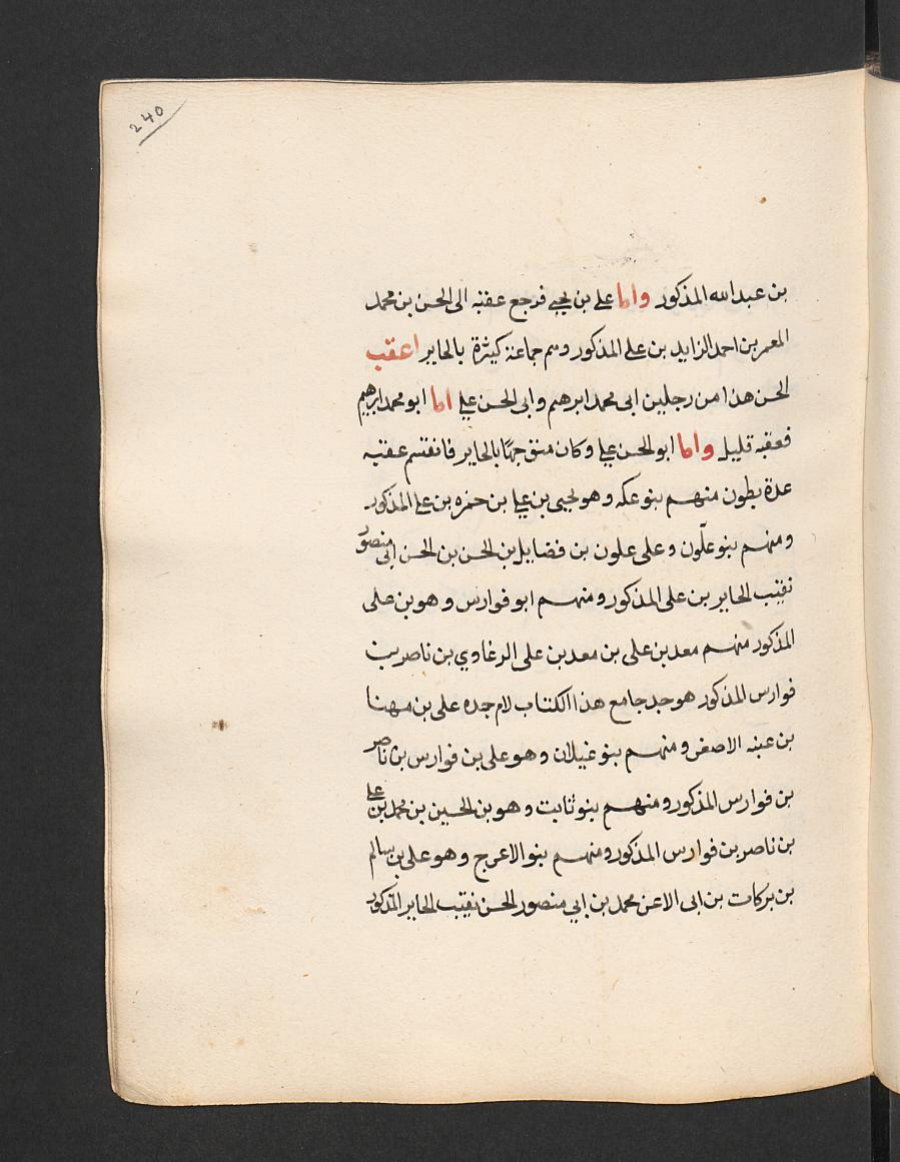 240
بن عبدالله المذكور واما علي بن يحيى فرجع عقبه الى الحسن بن محمد
المعمر بن احمد الزايد بن علي المذكور وهم جماعة كثيرة بالحاير اعقب
الحسن هذا من رجلين ابى محمد ابرهيم وابى الحسن علي اما ابو محمد ابرهيم
فعقبه قليل واما ابو الحسن علي وكان متوجها بالحاير فانقسم عقبه
عدة بطون منهم بنو عكه وهو يحيى بن علي بن حمزه بن علي المذكور
ومنهم بنو علّون وعلى علون بن فضايل بن الحسن بن الحسن ابي منصور
نقيب الحاير بن على المذكور ومنهم ابو فوارس وهو بن على
المذكور منهم معد بن على بن معد بن على الرغاوي بن ناصر بن
فوارس المذكور هو جد جامع هذا الكتاب لام جده على بن مهنا
بن عنبه الاصغر ومنهم بنو غيلان وهو على بن فوارس بن ناصر
بن فوارس المذكور ومنهم بنو ثابت وهو بن الحسين بن محمد بن علي
بن ناصر بن فوارس المذكور ومنهم بنو الاعرج وهو على بن سالم
بن بركات بن ابى الاعز محمد بن ابي منصور الحسن نقيب الحاير المذكور